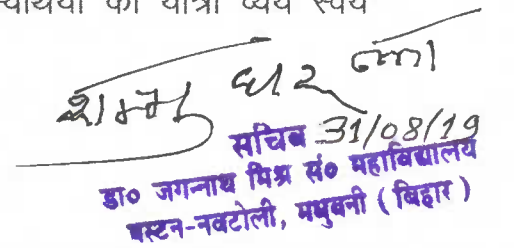 की यात्रा व्यय स्वयं
शम्भु धर झा
सचिव 31/08/19
डा० जगन्नाथ मिश्र सं० महाविद्यालय
बस्टन-नवटोली, मधुबनी ( बिहार )